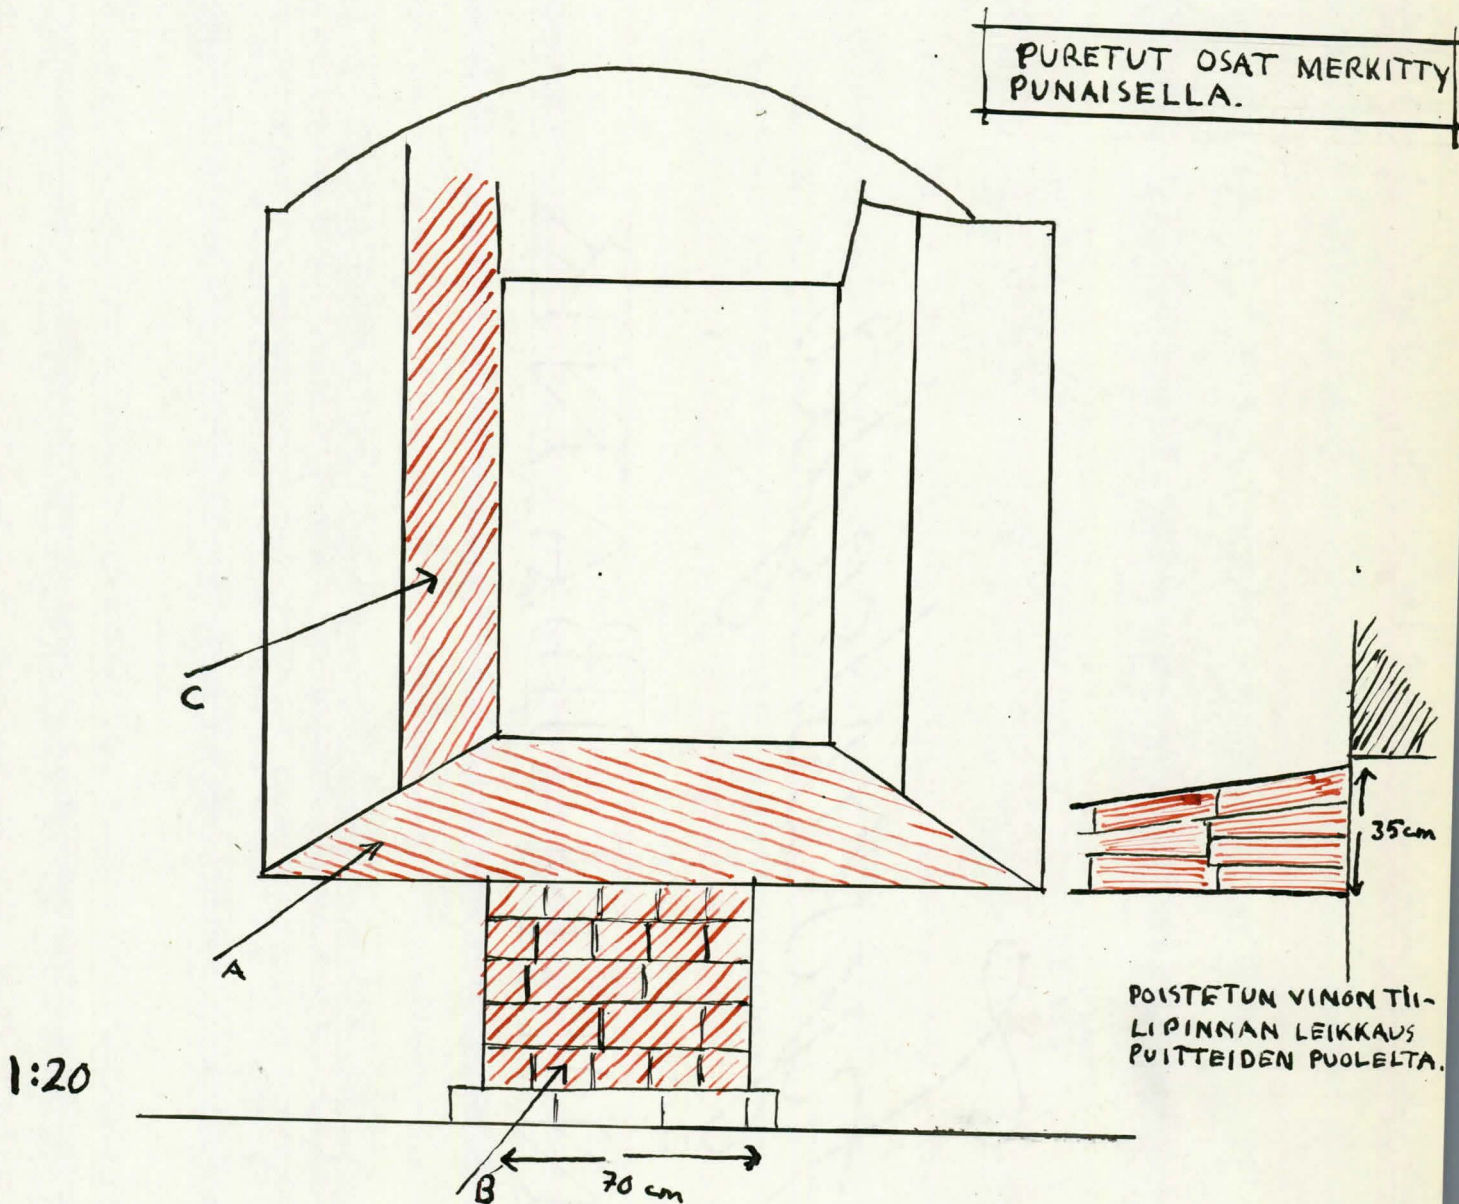 PURETUT OSAT MERKITTY
PUNAISELLA.
C
35cm
A
POISTETUN VINON TII-
LIPINNAN LEIKKAUS
PUITTEIDEN PUOLELTA.
1:20
B
70 cm